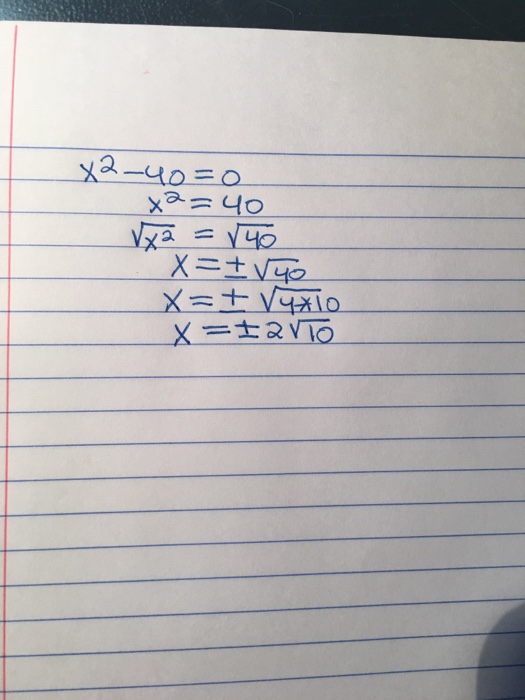 x²-40=0
x²=40
√x² = √40
x=±√40
x=±√4*10
x=±2√10